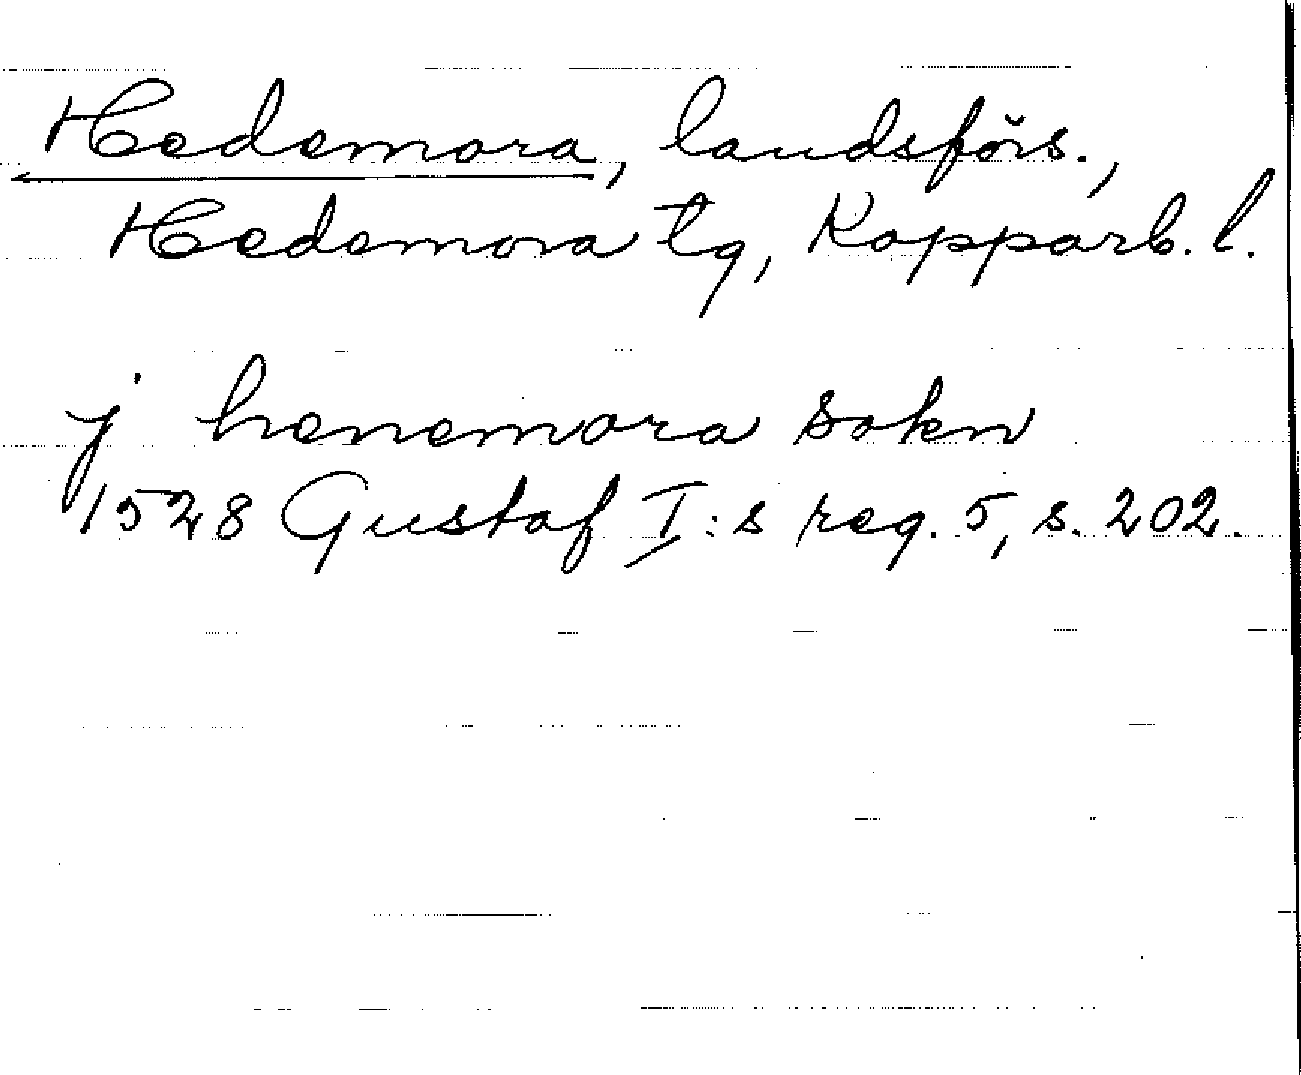 Hedemora, landsförs.,
Hedemora tg, Kopparb. l.
j henemora sokn
1528 Gustaf I:s reg. 5, s. 202.